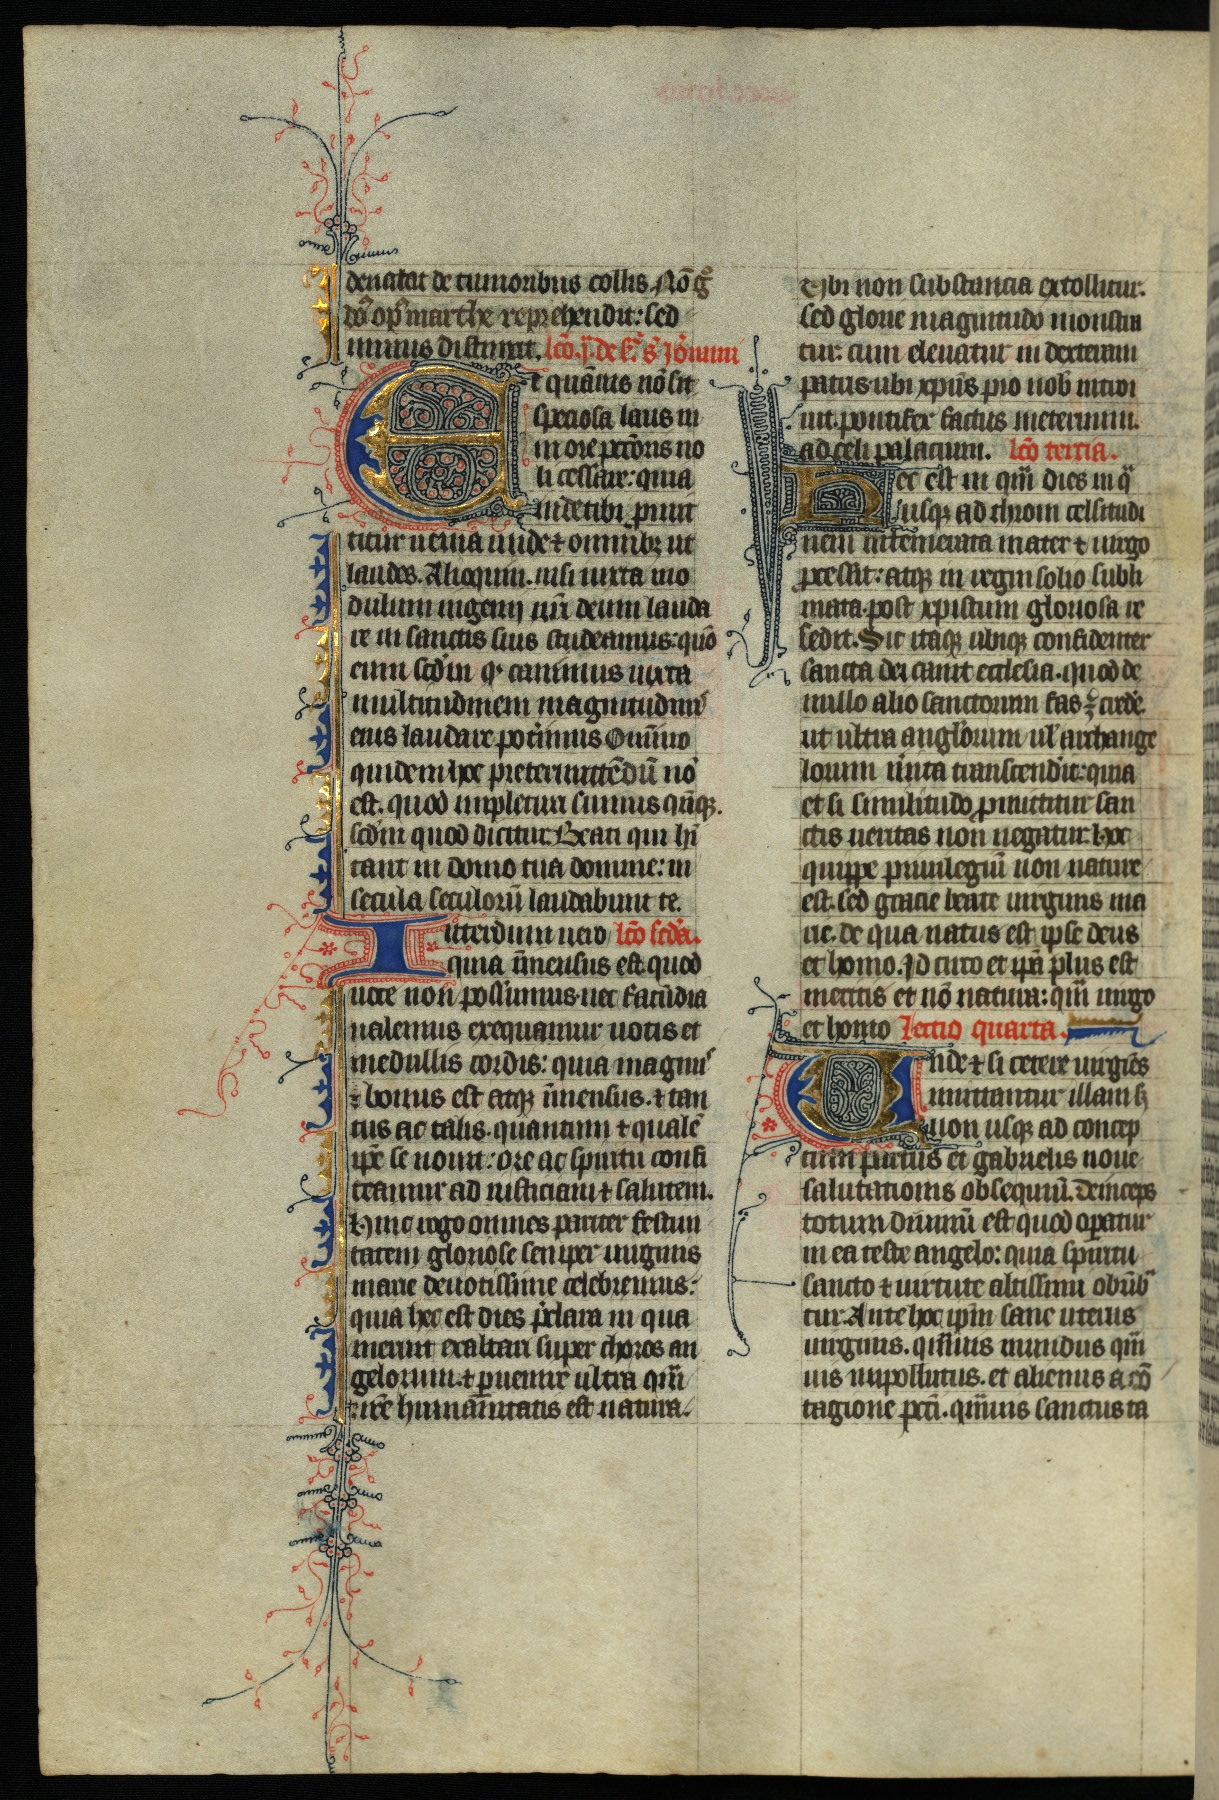 denatat de tumoribus collis. Nō gͦ
dn̄s opꝰ marthe reprehendit: sed
munus distinxit. lc̄o. j. de
t quāuis nō sit
speciosa laus in
in ore pctōris no
li cessare: quia
inde tibi ꝓmit
titur uenia unde ⁊ omnibꝫ ut
laudes. Alioquin. nisi iuxta mo
dulum ingenij nr̄i deum lauda
re in sanctis suis studeamus: quō
eum scd̄m qꝰ canimus iuxta
multitudinem magnitudinis
eius laudare poterimus Omīno
quidem hoc pretermittēdū nō
est. quod impleturi sumus qn̄qꝫ.
scd̄m quod dicitur Beati qui hī
tant in domo tua domine: in
secula seculorū laudabunt te.
Interdum uero lc̄o scd̄a.
quia īmensus est quod
uoce non possumus nec facūdia
ualemus exequamur uotis et
medullis cordis: quia magnus
⁊ bonus est atqꝫ īmensus. ⁊ tan
tus ac talis. quantum ⁊ qualē
ip̄e se nouit: ore ac spiritu confi
teamur ad iusticiam ⁊ salutem.
Hinc rogo omnes pariter festiui
tatem gloriose semper uirginis
marie deuotissime celebremus:
quia hec est dies p̄clara in qua
meruit exaltari super choros an
gelorum. ⁊ ꝑuenire ultra qm̄
nr̄e humanitatis est natura.
Vbi non substancia extollitur.
sed glorie magnitudo monstra
tur: cum eleuatur in dexteram
patris ubi xp̄us pro nob̄ introi
uit. pontifex factus ineternum.
ad celi palacium. lc̄o tercia.
Hec est in qm̄ dies in qᵃ
usqꝫ ad throni celsitudi
nem intemerata mater ⁊ uirgo
processit: atqꝫ in regni solio subli
mata. post xpistum gloriosa re
sedit. Sic itaqꝫ ubiqꝫ confidenter
sancta dei canit ecclesia. quod de
nullo alio sanctorum fas ē; credē.
ut ultra angl̓orum ul̓ archange
lorum m̄ita transcendit: quia
et si similitudo ꝓmittitur san
ctis ueritas non negatur. Hoc
quippe priuilegiū non nature
est. sed gracie beate uirginis ma
rie. de qua natus est ipse deus
et homo. Id circo et ip̄a plus est
meritis et nō natura: qm̄ uirgo
et homo Lectio quarta.
Unde ⁊ si cetere uirgīes
imittantur illam hͦ
non usqꝫ ad concep
tum partus et gabrielis noue
salutationis obsequiū. deinceps
totum diuinū est quod oꝑatur
in ea teste angelo: quia spiritu
sancto ⁊ uirtute altissimi obūbᵃ
tur. Ante hoc ip̄m sane uterus
uirginis. qm̄uis mundus qm̄
uis inpollutus. et alienus a cō
tagione pcti. qm̄uis sanctus ta